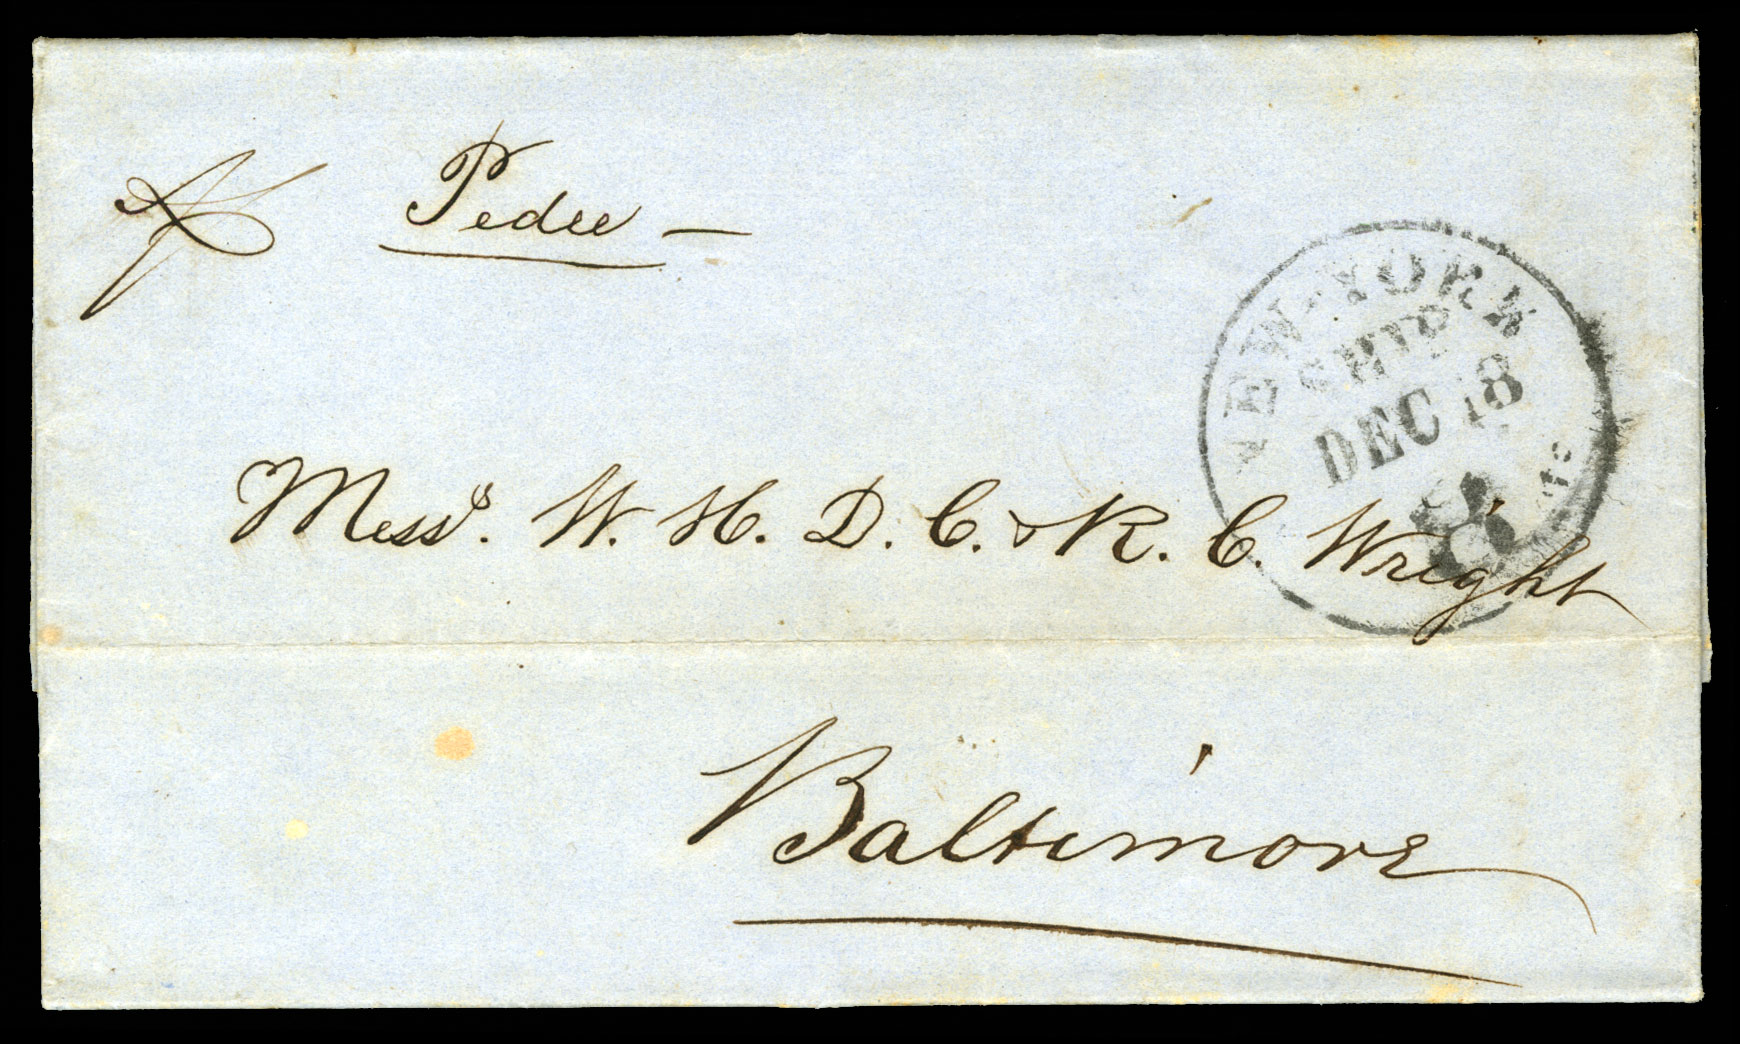 ⅌ Pedee —
NEW-YORK
SHIP
DEC 18
cts
Messrs. W. H. D. C. & R. C. Wright
Baltimore